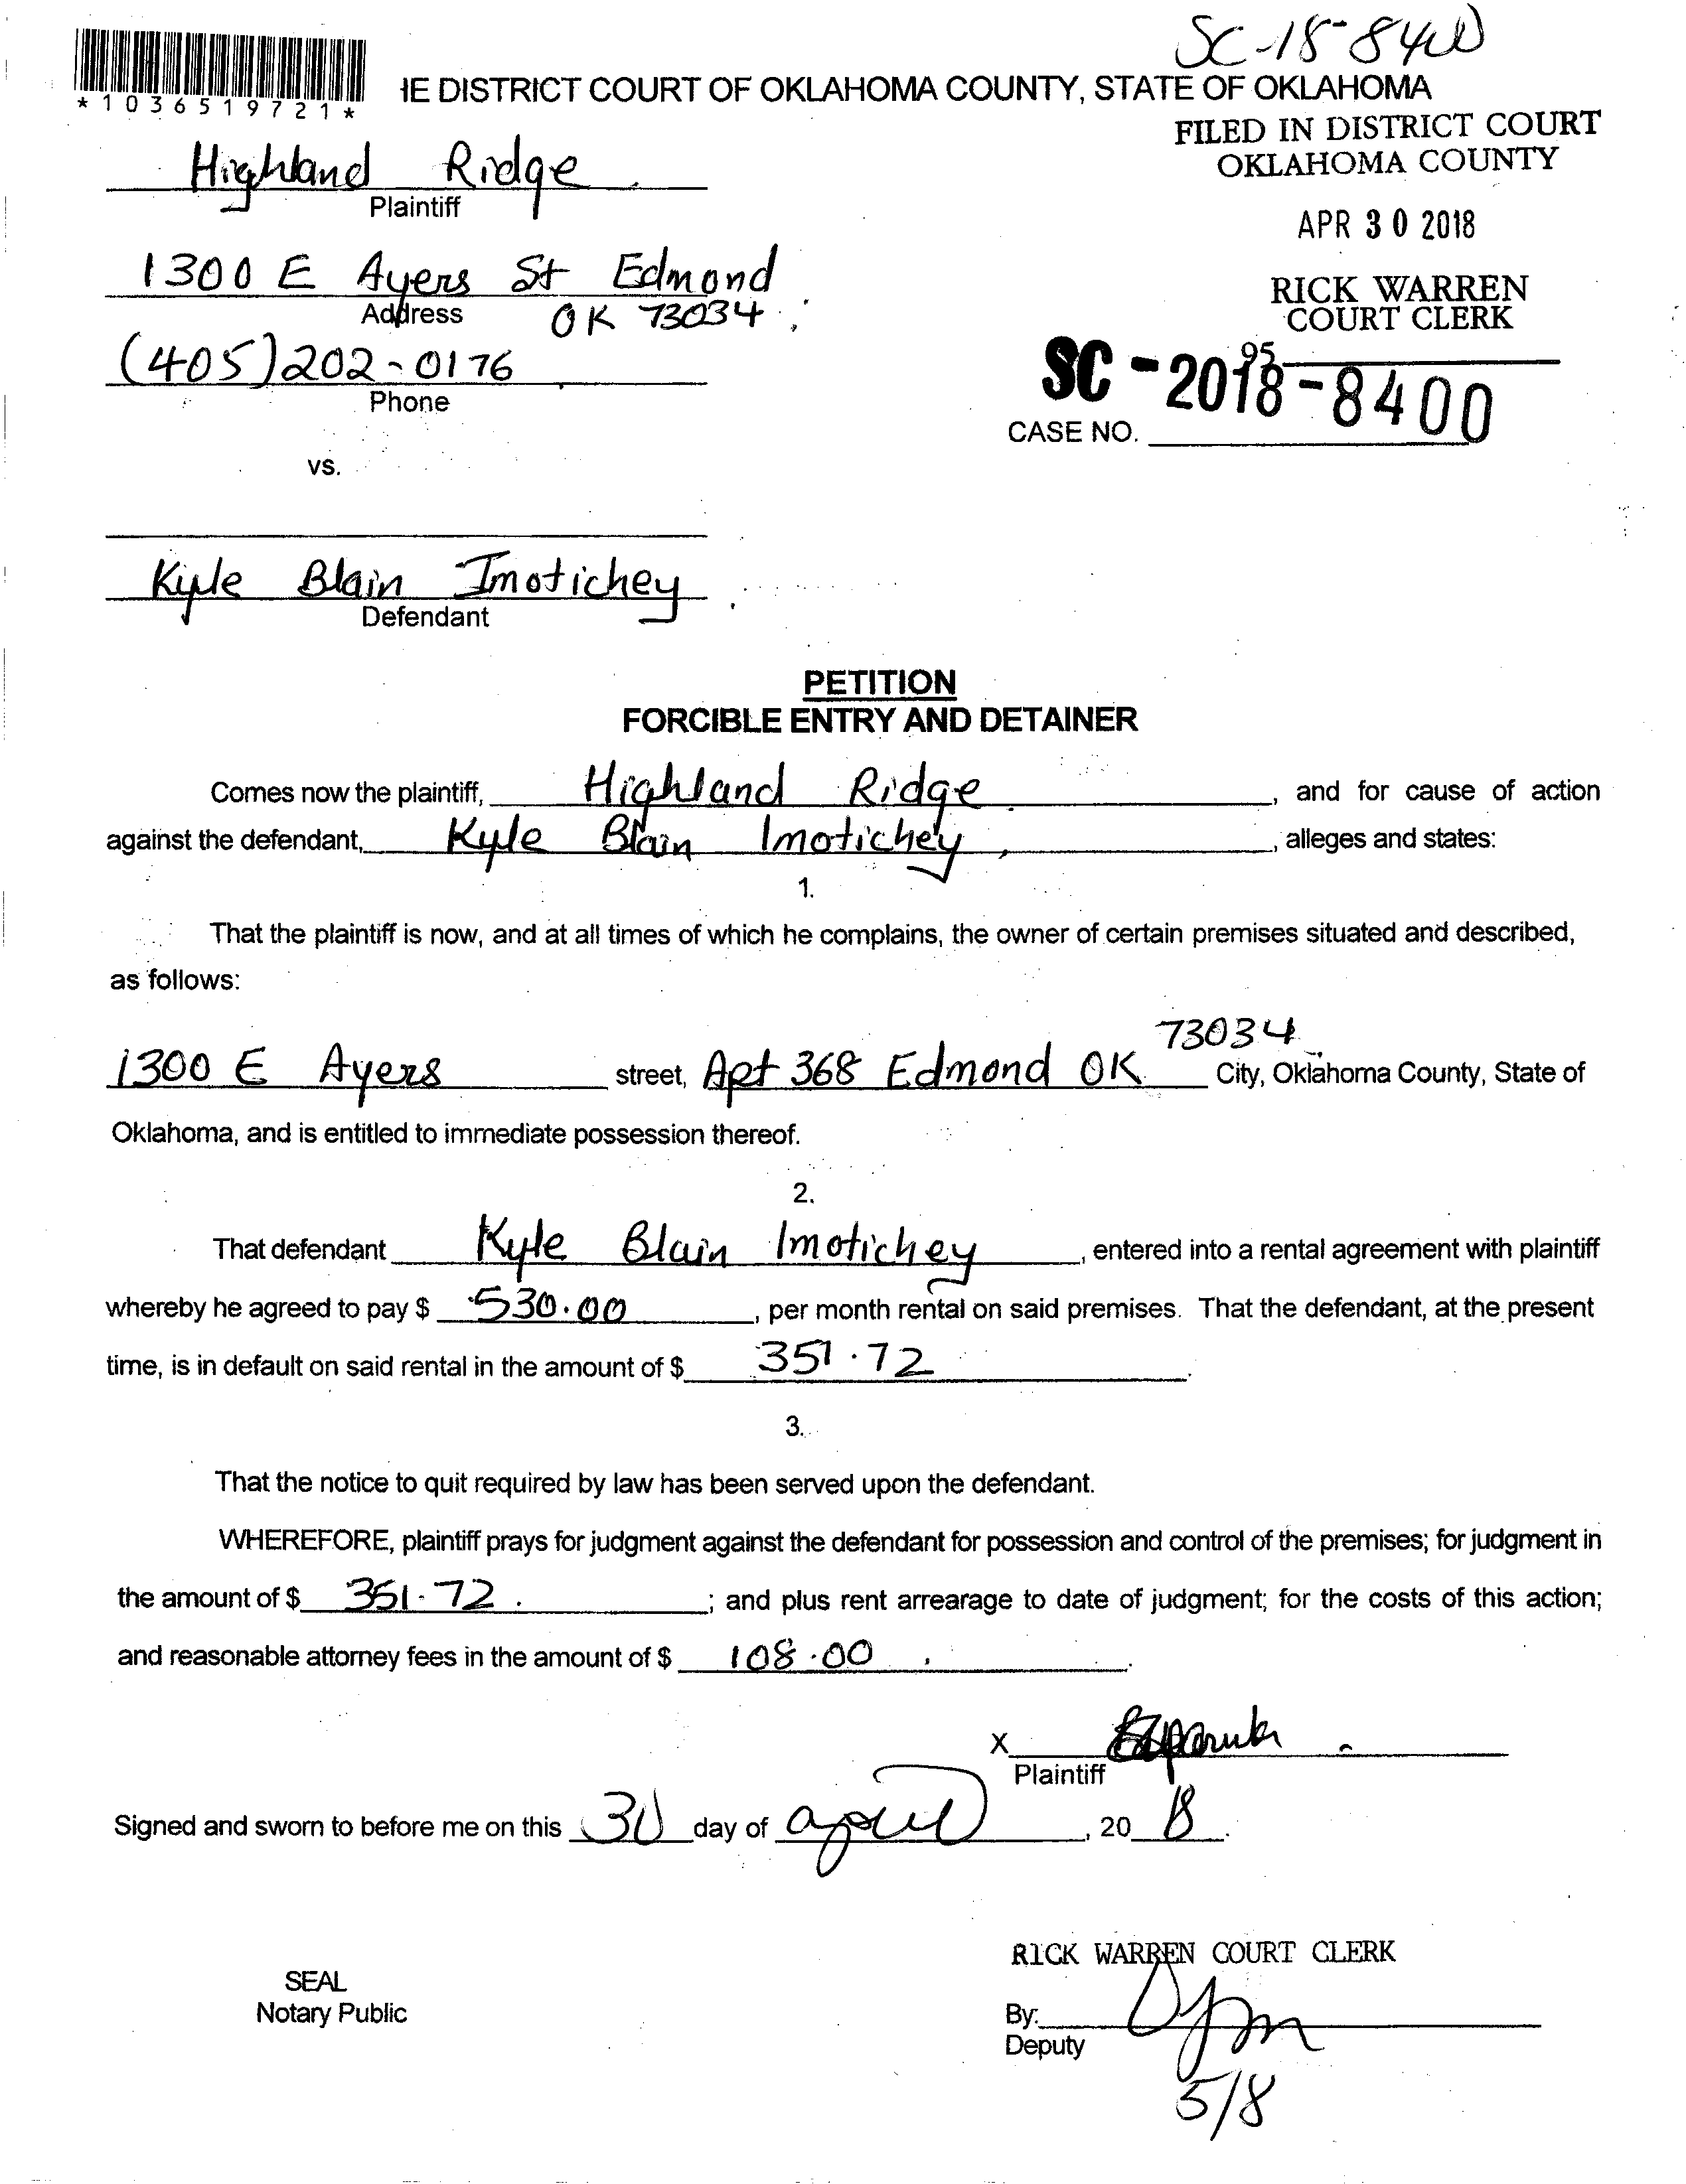 SC-18-8400
*1036519721*
IE DISTRICT COURT OF OKLAHOMA COUNTY, STATE OF OKLAHOMA
FILED IN DISTRICT COURT
OKLAHOMA COUNTY
Highland Ridge
Plaintiff
APR 30 2018
1300 E Ayers St Edmond
Address OK 73034
RICK WARREN
COURT CLERK
(405)202-0176
Phone
95
SC-2018-8400
CASE NO.
vs.
Kyle Blain Imotichey
Defendant
PETITION
FORCIBLE ENTRY AND DETAINER
Comes now the plaintiff, Highland Ridge, and for cause of action
against the defendant, Kyle Blain Imotichey, alleges and states:
1.
That the plaintiff is now, and at all times of which he complains, the owner of certain premises situated and described,
as follows:
73034
1300 E Ayers street, Apt 368 Edmond OK City, Oklahoma County, State of
Oklahoma, and is entitled to immediate possession thereof.
2.
That defendant Kyle Blain Imotichey, entered into a rental agreement with plaintiff
whereby he agreed to pay $ 530.00, per month rental on said premises. That the defendant, at the present
time, is in default on said rental in the amount of $ 351.72.
3.
That the notice to quit required by law has been served upon the defendant.
WHEREFORE, plaintiff prays for judgment against the defendant for possession and control of the premises; for judgment in
the amount of $ 351-72.; and plus rent arrearage to date of judgment; for the costs of this action;
and reasonable attorney fees in the amount of $ 108.00.
X
Plaintiff
Signed and sworn to before me on this 30 day of april, 20 18.
RICK WARREN COURT CLERK
SEAL
Notary Public
By:
Deputy
5/8